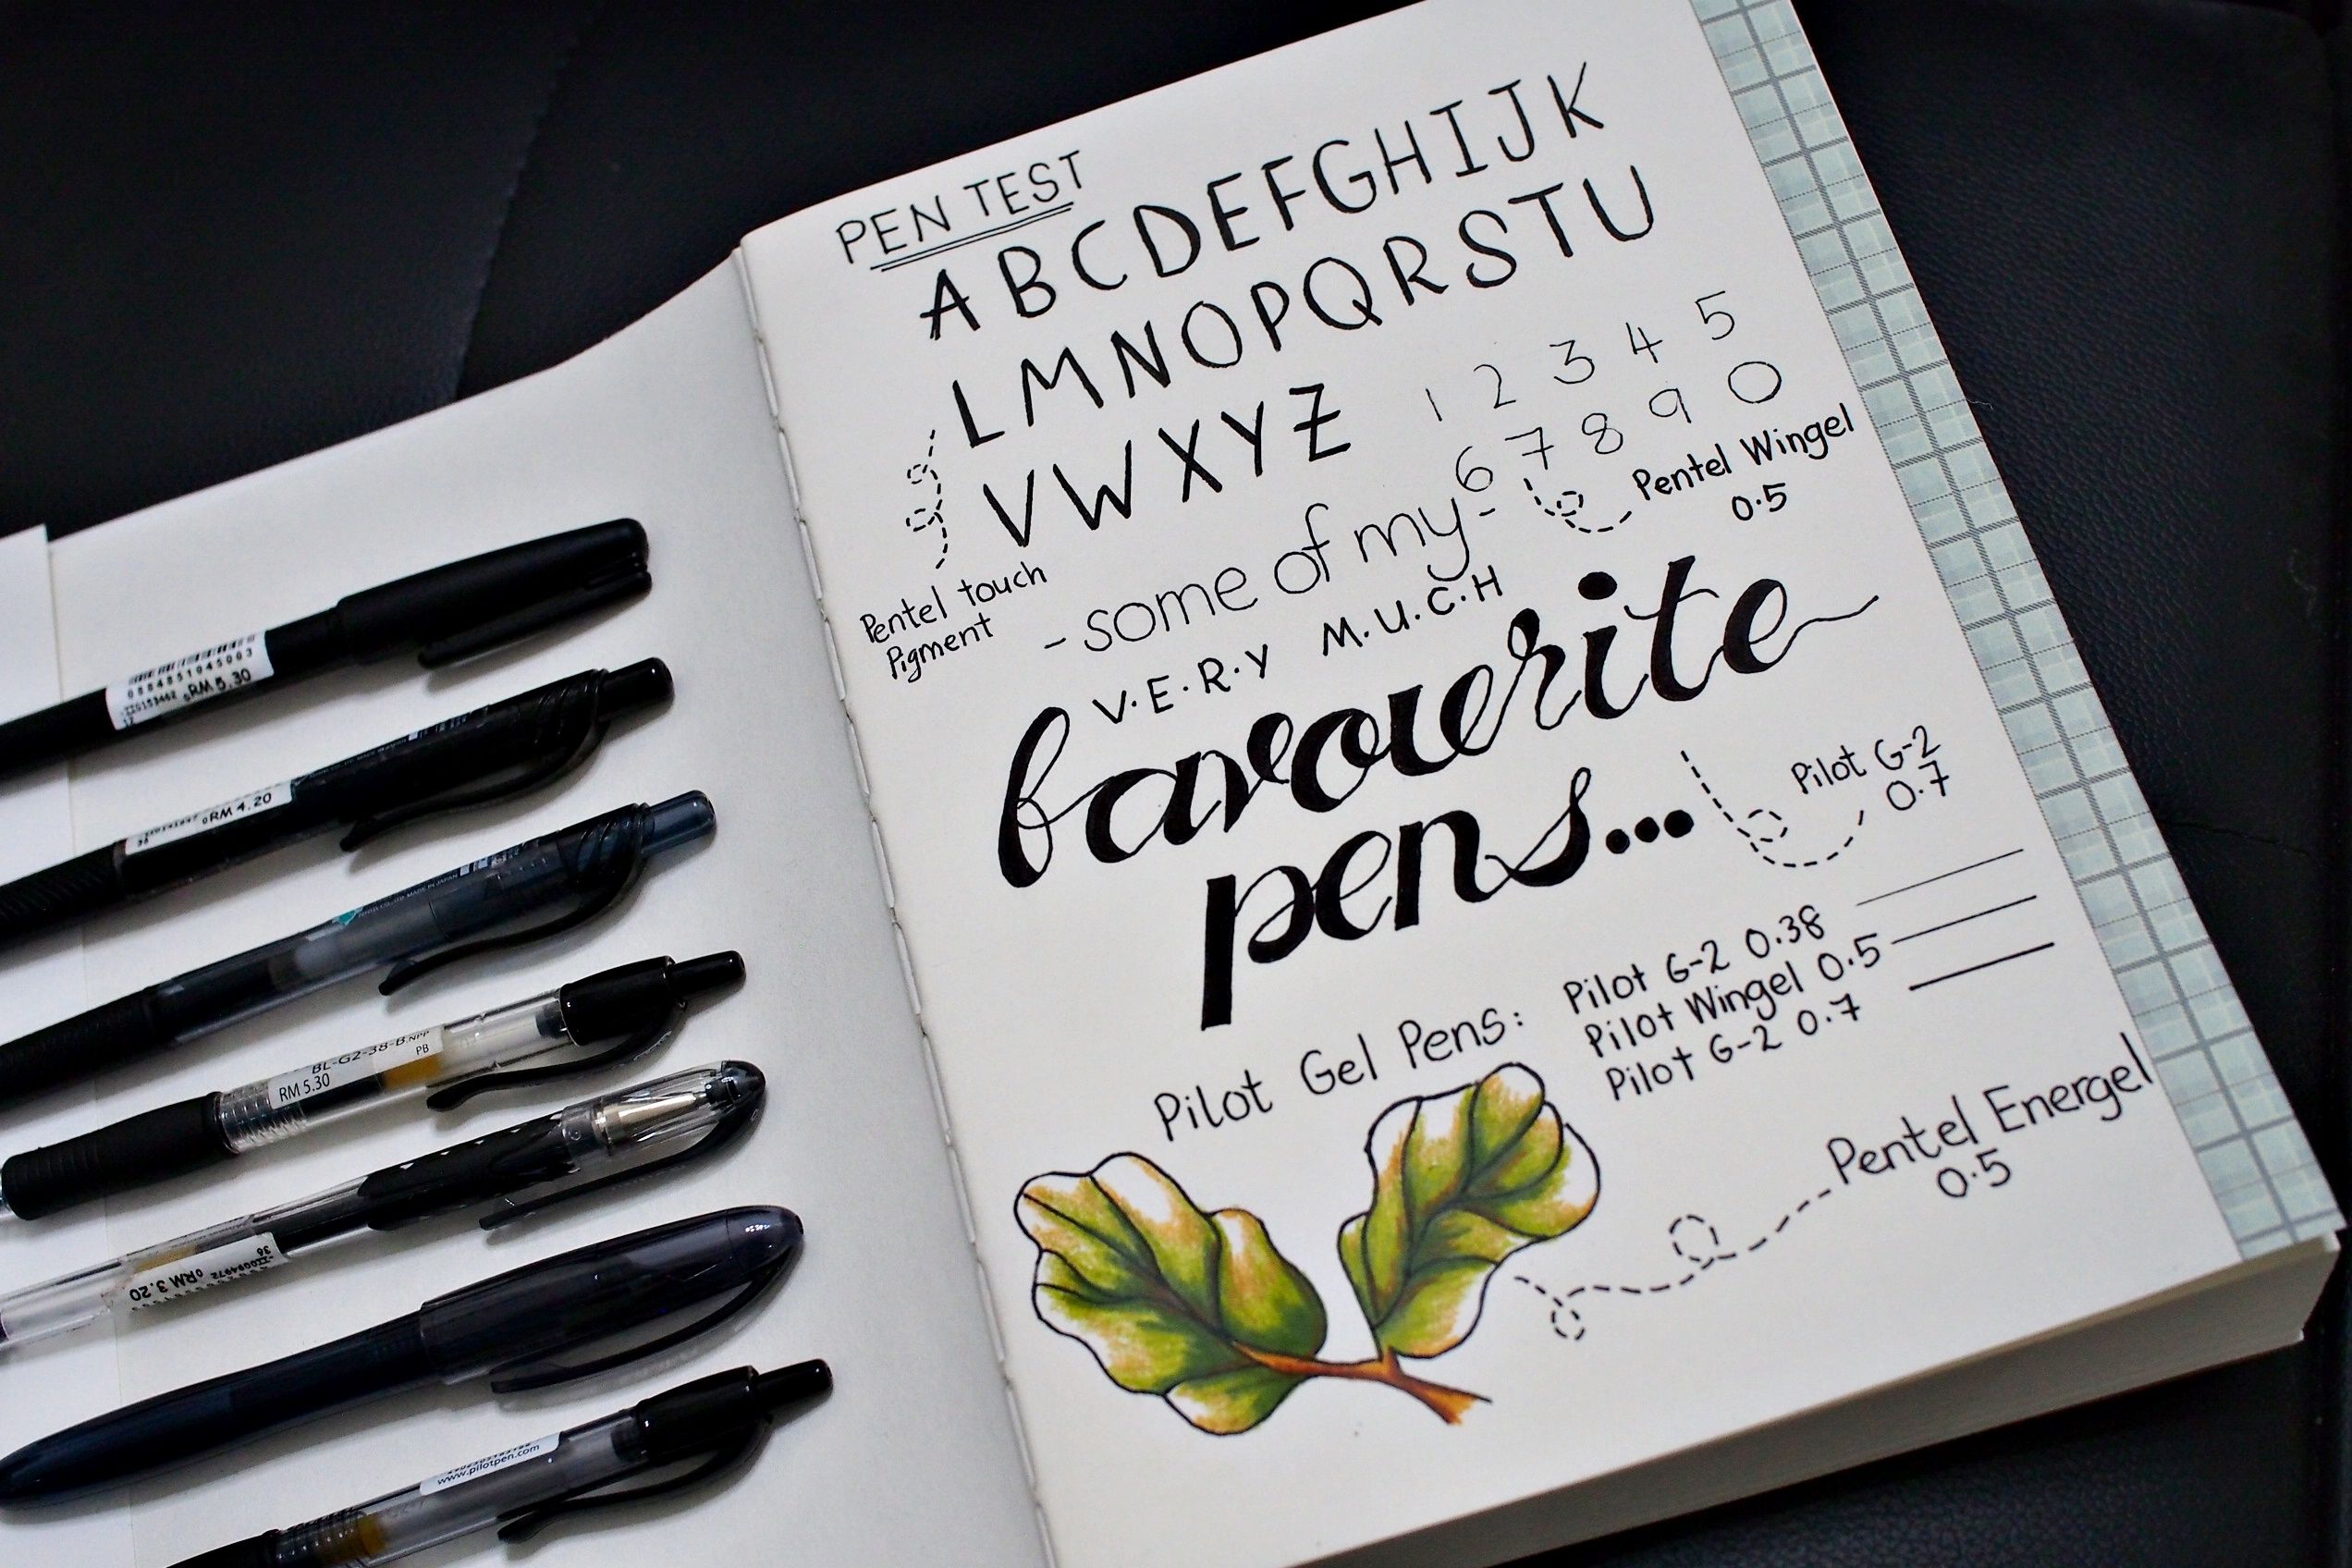 PEN TEST
A B C D E F G H I J K
L M N O P Q R S T U
V W X Y Z
1 2 3 4 5
6 7 8 9 0
Pentel Wingel
0.5
Pentel touch
Pigment
- some of my -
V.E.R.Y M.U.C.H
favourite
pens...
Pilot G-2
0.7
Pilot Gel Pens:
Pilot G-2 0.38
Pilot Wingel 0.5
Pilot G-2 0.7
Pentel Energel
0.5
0884851045003
RM 5.30
RM 4.20
MADE IN JAPAN
BL-G2-38-B.NPP
PB
RM 5.30
RM 3.20
36
www.pilotpen.com